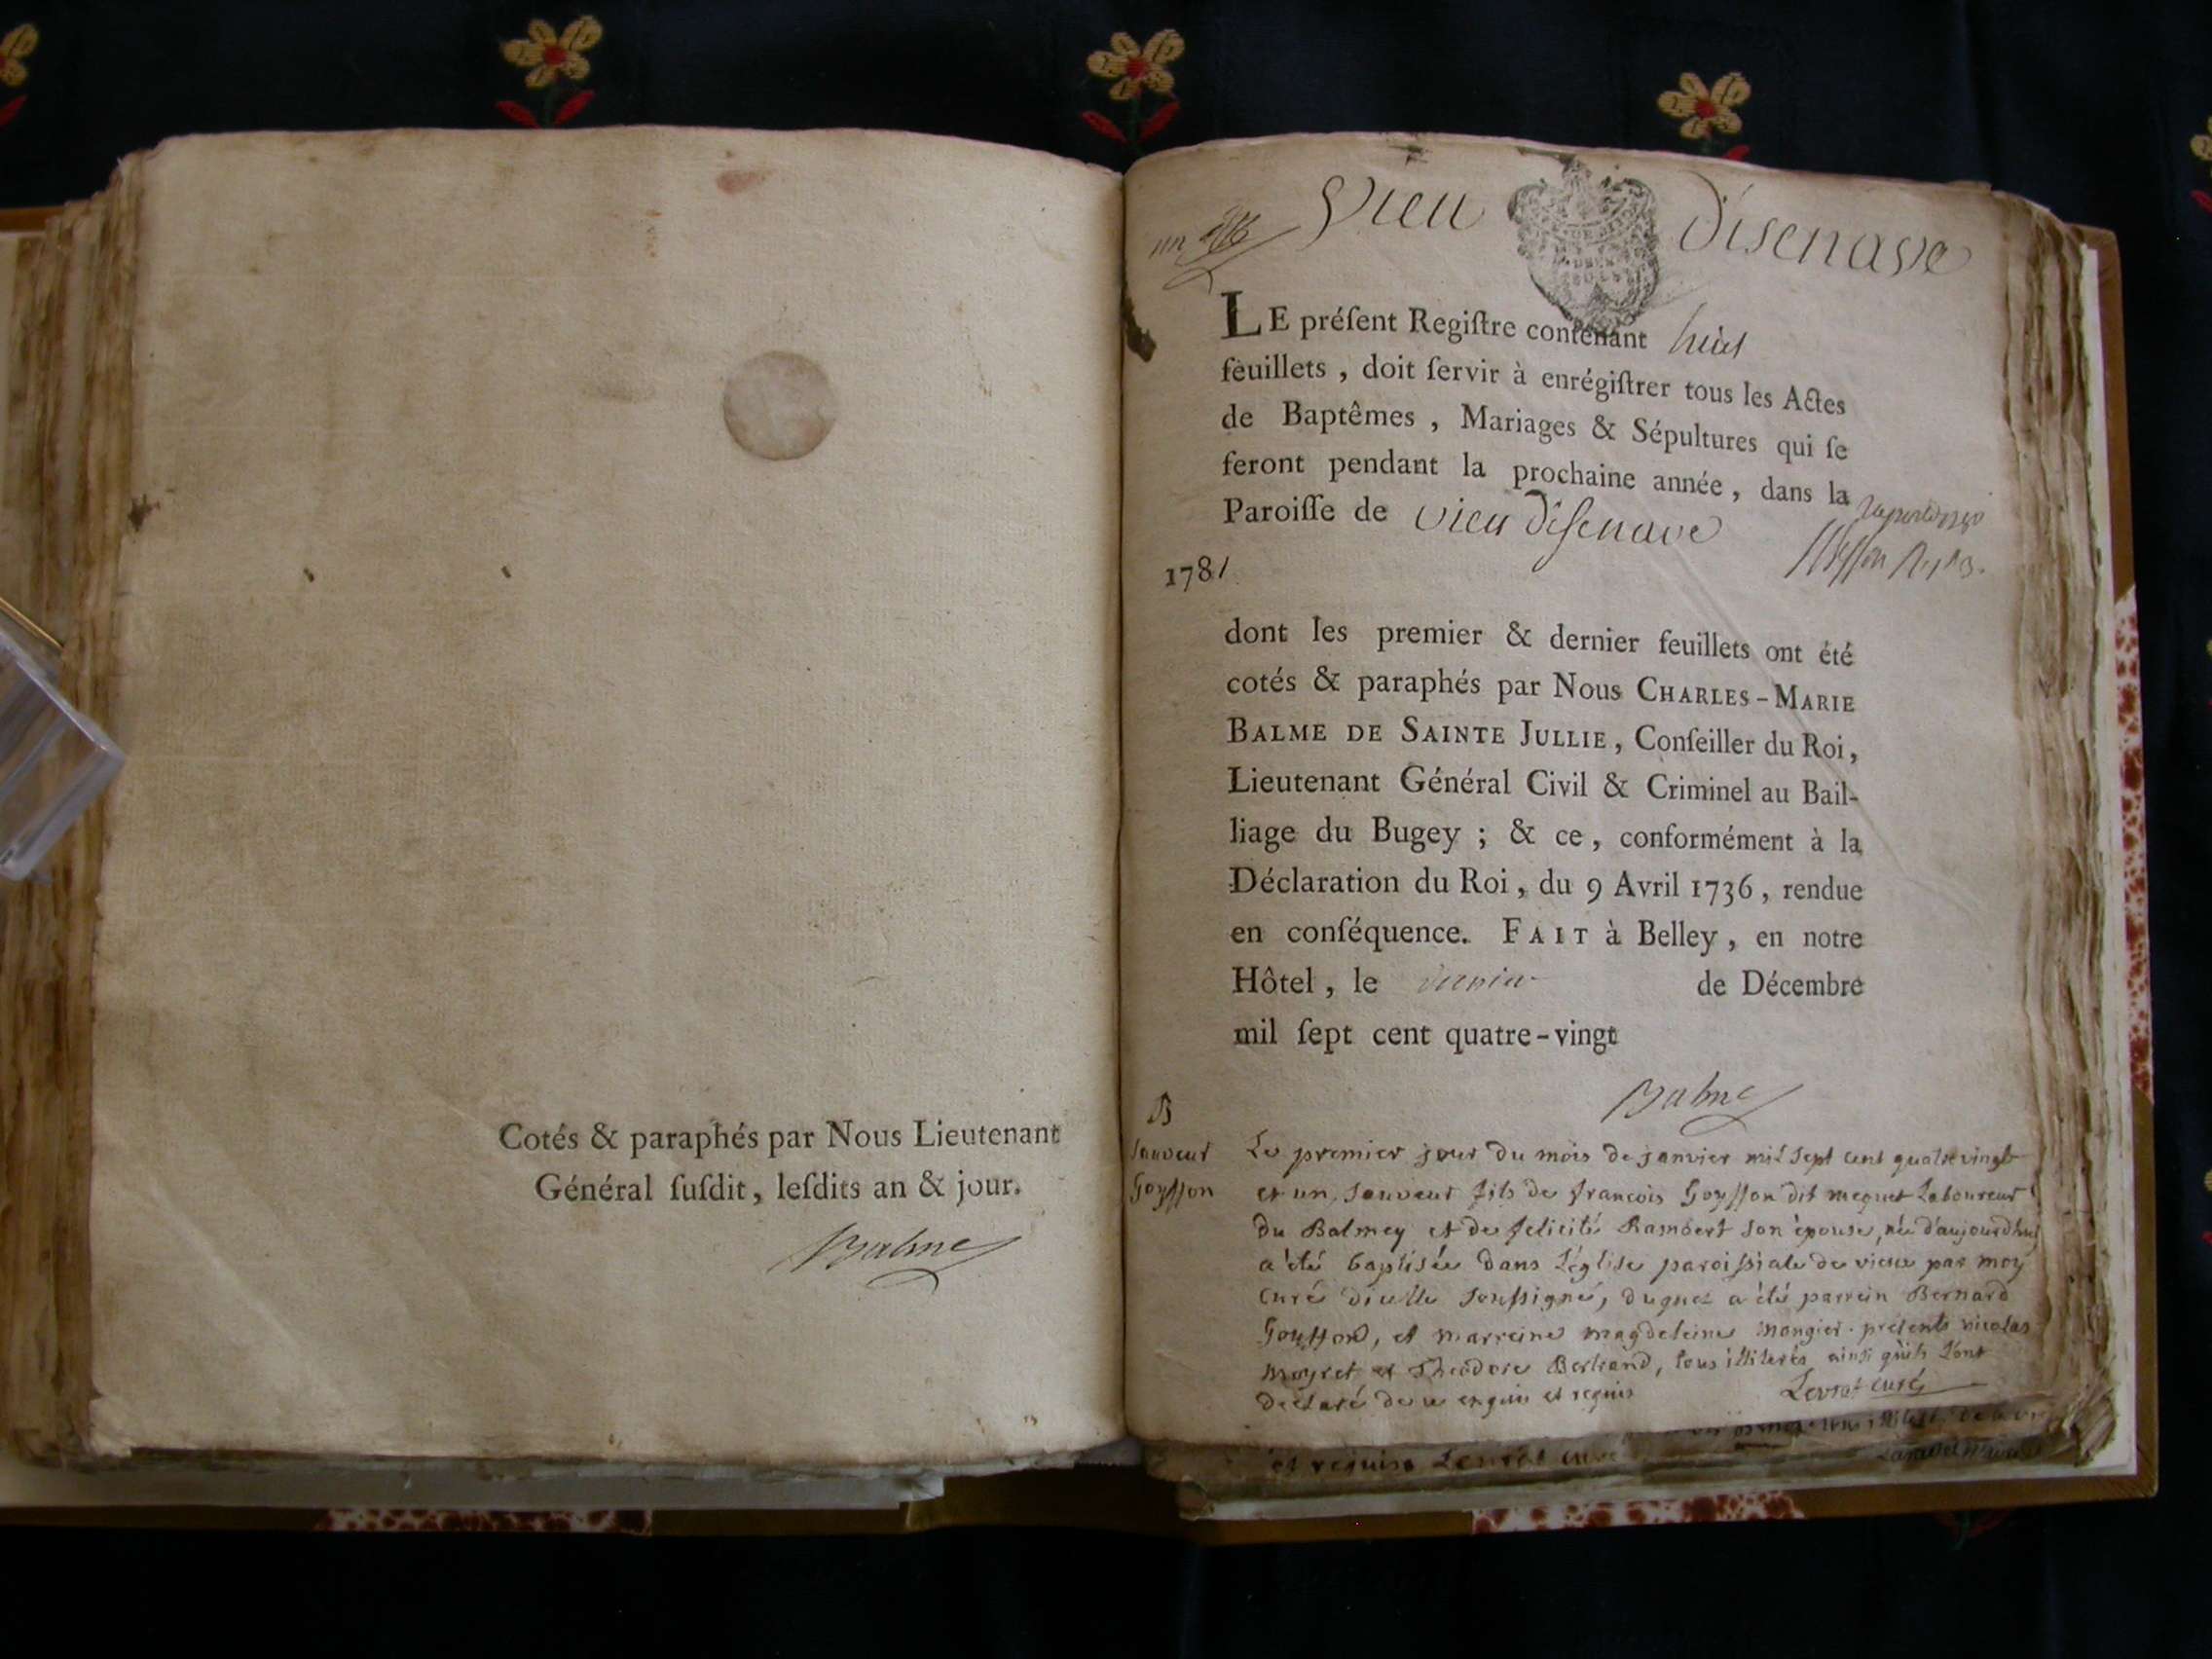 Cotés & paraphés par Nous Lieutenant
Général ſuſdit, leſdits an & jour.
Balme
un
Vieu Disenave
LE préſent Regiſtre contenant huit
feuillets, doit ſervir à enrégiſtrer tous les Actes
de Baptêmes, Mariages & Sépultures qui ſe
feront pendant la prochaine année, dans la
Paroiſſe de vieu diſenave
1781
dont les premier & dernier feuillets ont été
cotés & paraphés par Nous CHARLES-MARIE
BALME DE SAINTE JULLIE, Conſeiller du Roi,
Lieutenant Général Civil & Criminel au Bail-
liage du Bugey ; & ce, conformément à la
Déclaration du Roi, du 9 Avril 1736, rendue
en conſéquence. FAIT à Belley, en notre
Hôtel, le de Décembre
mil ſept cent quatre-vingt
Balme
B
Sauveur
Goyſſon
Le premier jour du mois de janvier mil sept cent quatre vingt
et un, Sauveur fils de francois Goyſſon dit Laboureur
du Balmey et de felicité Rambert son épouse, née d'aujourdhuy
a été baptisée dans L'église paroiſſiale de vieu par moy
curé dicelle Souſſigné, duquel a été parrein Bernard
Goyſſon, et marreine magdeleine mongier. présents nicolas
moyret et Theodore Bertrand, tous illiterés ainsi qu'ils L'ont
declaré de ce enquis et requis Levrat curé
et requis Levrat curé